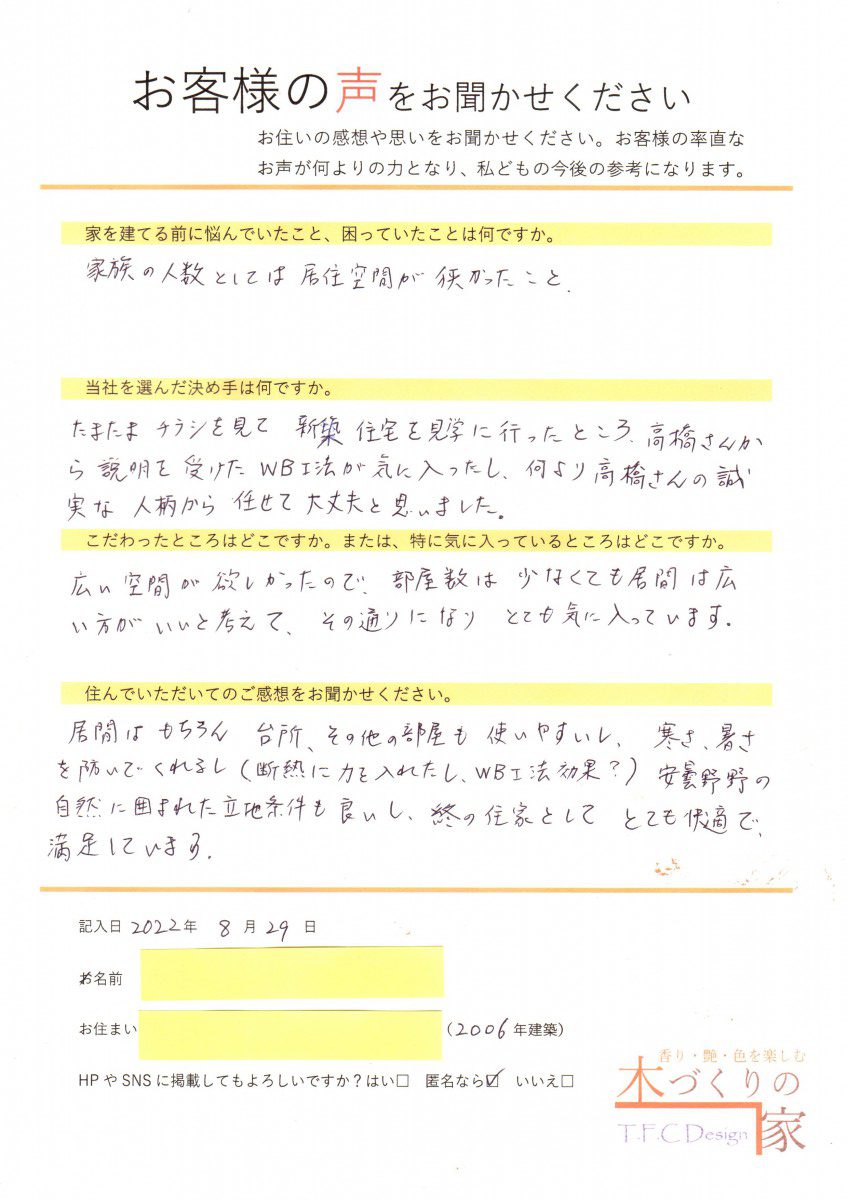 お客様の声をお聞かせください
お住いの感想や思いをお聞かせください。お客様の率直な
お声が何よりの力となり、私どもの今後の参考になります。
家を建てる前に悩んでいたこと、困っていたことは何ですか。
家族の人数としては居住空間が狭かったこと.
当社を選んだ決め手は何ですか。
たまたまチラシを見て新築住宅を見学に行ったところ、高橋さんか
ら説明を受けたWB工法が気に入ったし、何より高橋さんの誠
実な人柄から任せて大丈夫と思いました。
こだわったところはどこですか。または、特に気に入っているところはどこですか。
広い空間が欲しかったので、部屋数は少なくても居間は広
い方がいいと考えて、その通りになりとても気に入っています.
住んでいただいてのご感想をお聞かせください。
居間はもちろん台所、その他の部屋も使いやすいし、寒さ、暑さ
を防いでくれるし(断熱に力を入れたし、WB工法効果?)安曇野野の
自然に囲まれた立地条件も良いし、終の住家としてとても快適で、
満足しています.
記入日 2022年 8月29日
お名前
お住まい (2006年建築)
HPやSNSに掲載してもよろしいですか?はい□ 匿名なら☑ いいえ□
香り・艶・色を楽しむ
木づくりの
家
T.F.C Design